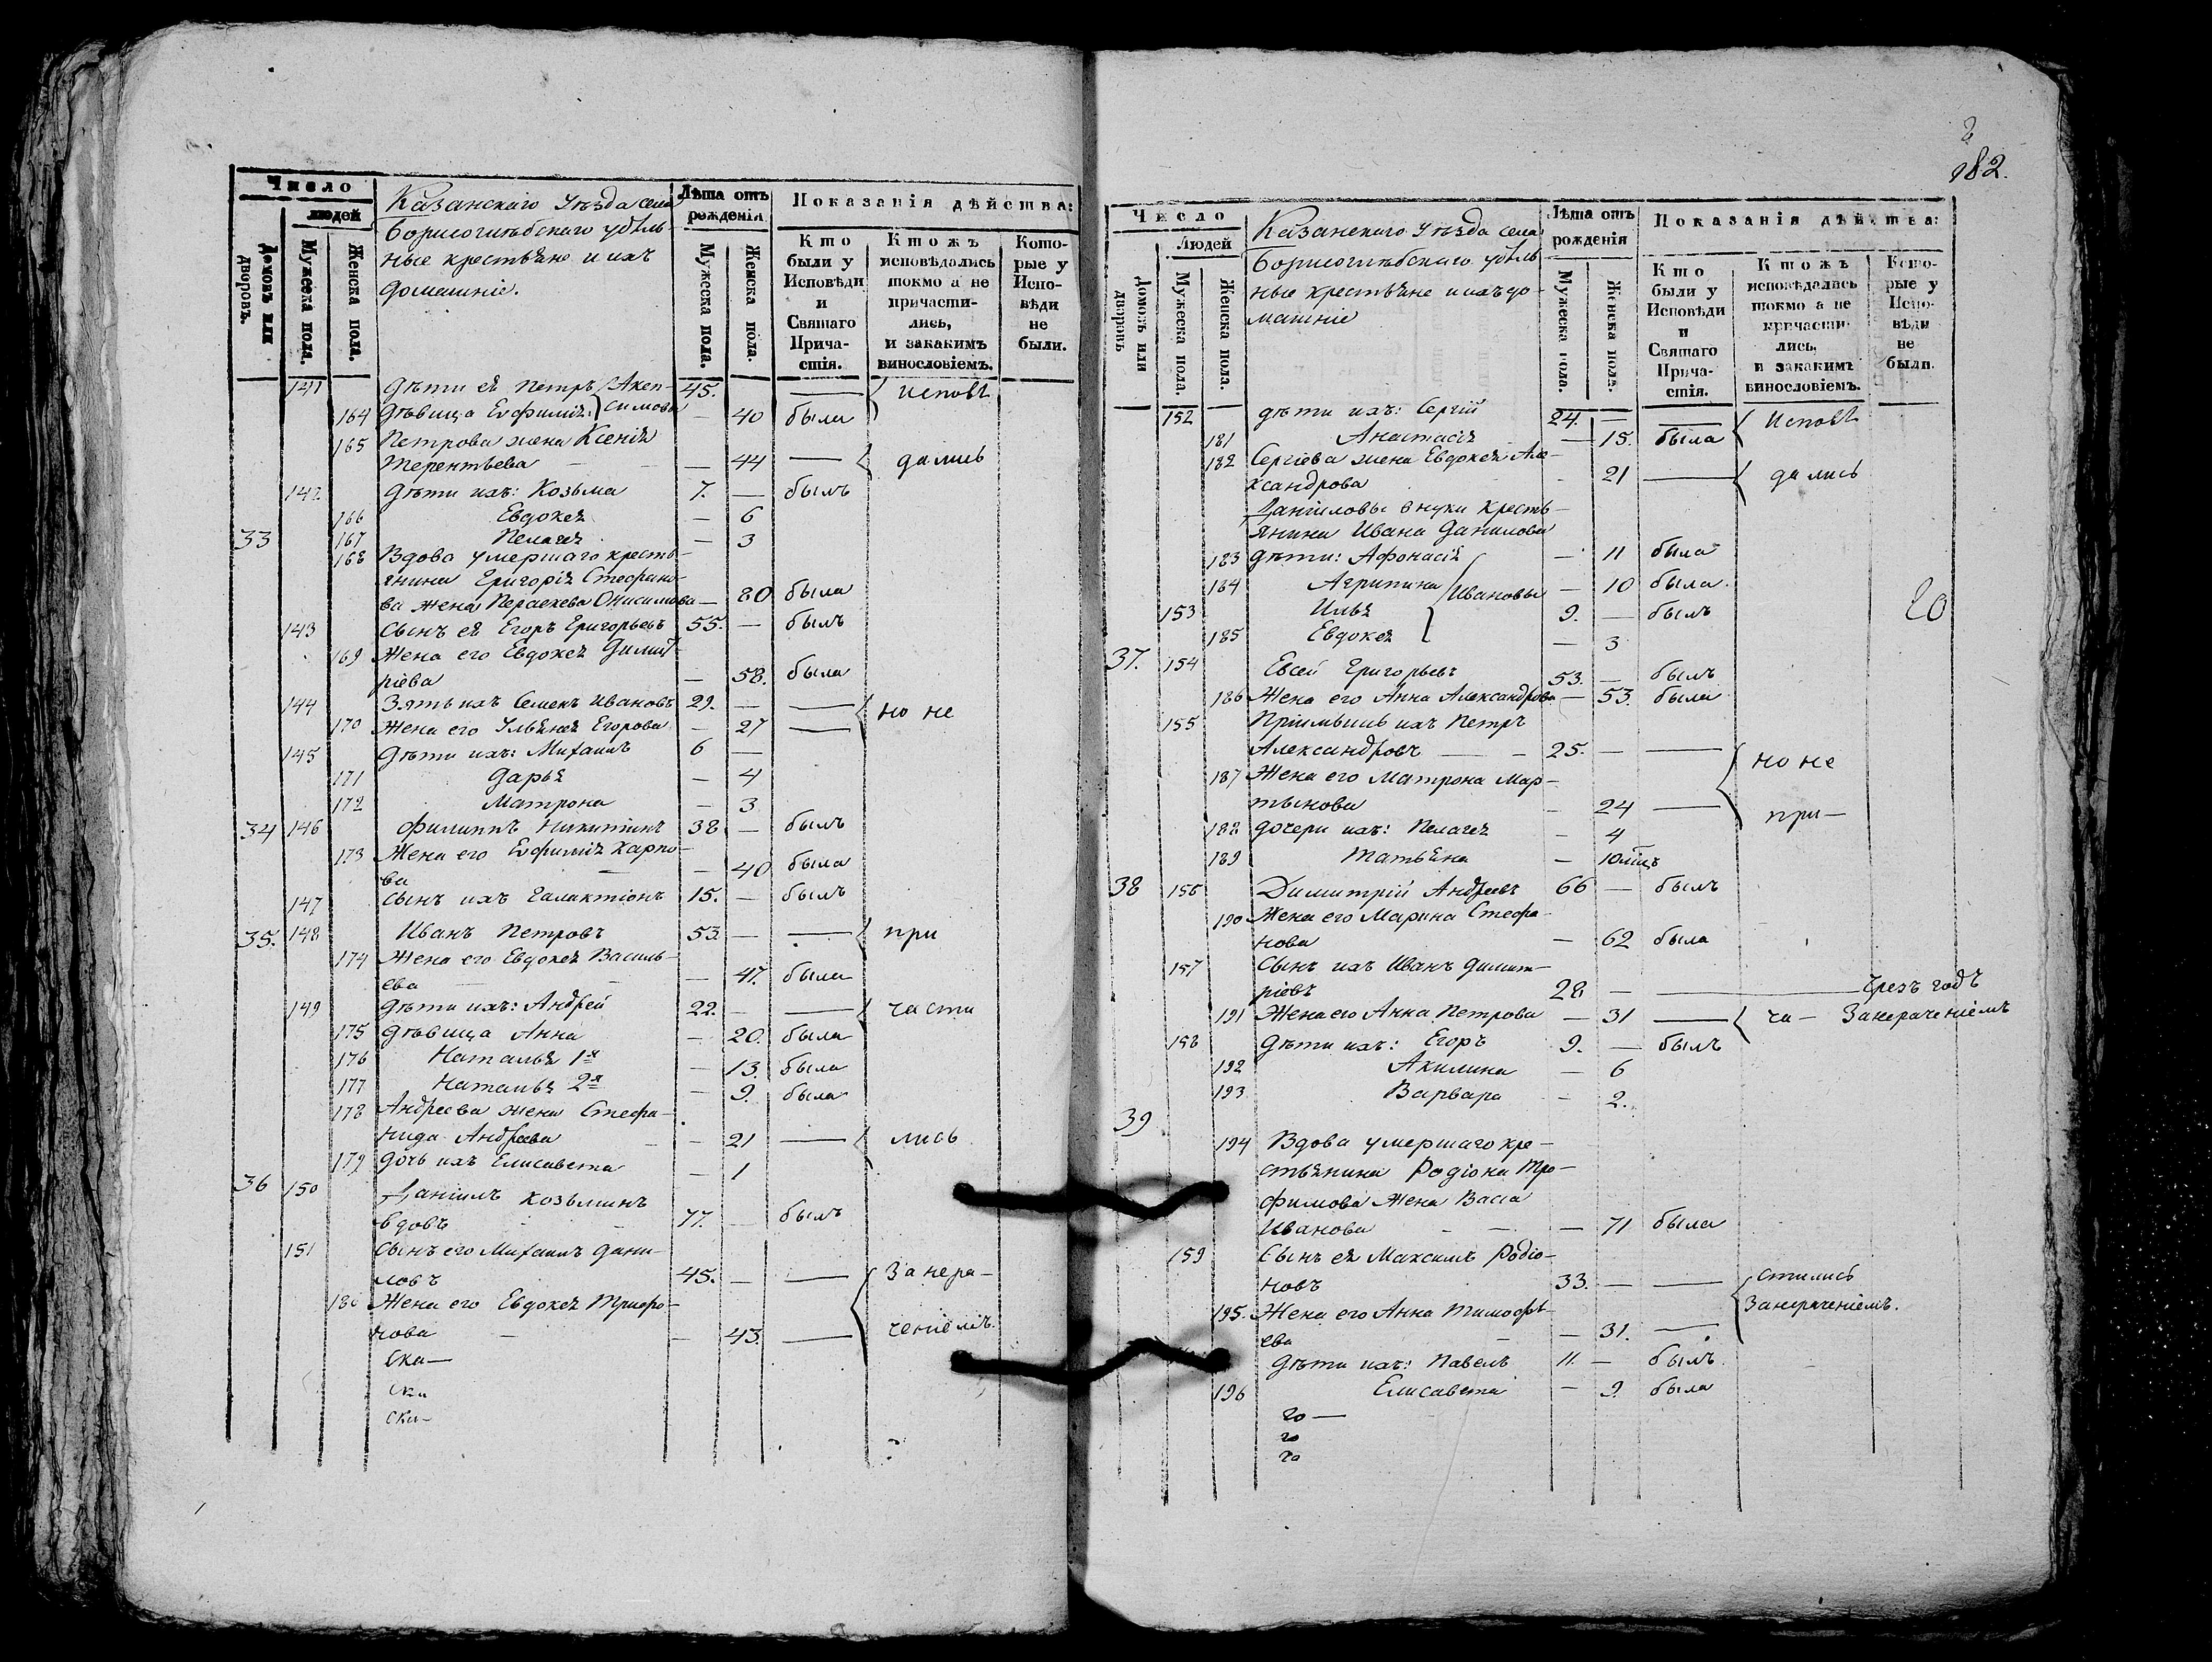 Число
людей
Домовъ или дворовъ.
Мужеска пола.
Женска пола.
Казанскаго Уѣзда села
Борисоглѣбскаго удѣль-
ные крестьяне и ихъ
домашніе.
Лѣта отъ рожденія
Мужеска пола.
Женска пола.
Показанія дѣйства:
Кто были у Исповѣди и Святаго Прича-стія.
Ктожъ исповѣдались токмо а не причасти-лись, и закакимъ винословіемъ.
Кото-рые у Испо-вѣди не были.
141 дѣти ея Петръ Акеп- 45. — Исповѣ
164 дѣвица Евфимія симовы — 40 была
165 Петрова жена Ксенія
Терентьева — 44 — дались
142 дѣти ихъ: Козьма 7. — былъ
166 Евдокея — 6
33 167 Пелагея — 3
168 Вдова умершаго кресть-
янина Григорія Стефано-
ва жена Параскева Онисимова — 80 была
143 сынъ ея Егоръ Григорьевъ 55. — былъ
169 Жена его Евдокея Димит-
ріева — 58. была
144 Зять ихъ Семенъ Ивановъ 29. — — но не
170 Жена его Ульяна Егорова — 27 —
145 дѣти ихъ: Михаилъ 6 —
171 Дарья — 4
172 Матрона — 3
34 146 Филиппъ Никитинъ 38 — былъ
173 Жена его Евфимія Карпо-
ва — 40 была
147 сынъ ихъ Галактіонъ 15. — былъ
35. 148 Иванъ Петровъ 53. — — при
174 Жена его Евдокея Василь-
ева — 47. была
149 дѣти ихъ: Андрей 22. — — части
175 дѣвица Анна — 20. была
176 Наталья 1я — 13. была
177 Наталья 2я — 9. была
178 Андреева жена Стефа-
нида Андреева — 21 — лись
179 дочь ихъ Елисавета — 1
36 150 Даніилъ Козьминъ
вдовъ 77. — былъ
151 сынъ его Михаилъ Дани-
ловъ 45. — — Занера-
180 Жена его Евдокея Трифо-
нова — 43. — ченіемъ.
ска—
ска
ска—
182.
Число
Людей
Домовъ или дворовъ
Мужеска пола.
Женска пола.
Казанскаго Уѣзда села
Борисоглѣбскаго удѣль
ные крестьяне и ихъ до-
машніе
Лѣта отъ рожденія
Мужеска пола.
Женска пола.
Показанія дѣйства:
Кто были у Исповѣди и Святаго Прича-стія.
Ктожъ исповѣдались токмо а не причасти-лись, и закакимъ винословіемъ.
Кото-рые у Испо-вѣди не были.
152 дѣти ихъ: Сергій 24. — — Исповѣ
181 Анастасія — 15. была
182 Сергіева жена Евдокея Але-
ксандрова — 21 — дались
Даніиловы внуки кресть-
янина Ивана Данилова
183 дѣти: Афонасія — 11 была
184 Агрипина Ивановы — 10 была
153 Илья 9. — былъ
20
185 Евдокея — 3
37. 154 Евсей Григорьевъ 53. — былъ
186 Жена его Анна Александрова — 53. была
155 Пріимышъ ихъ Петръ
Александровъ — 25. — — но не
187 Жена его Матрона Мар-
тынова — 24 — при—
188 дочери ихъ: Пелагея — 4
189 Татьяна — 10 мцъ
38 156 Димитрій Андреевъ 66 — былъ
190 Жена его Марина Стефа-
нова — 62 была
157 сынъ ихъ Иванъ Димит-
ріевъ 28 — — Чрезъ годъ
191 Жена его Анна Петрова — 31 — ча— Занераченіемъ
158 дѣти ихъ: Егоръ 9. — былъ
192 Акилина — 6
193 Варвара — 2.
39
194 Вдова умершаго кре-
стьянина Родіона Тро-
фимова Жена Васса
Иванова — 71 была
159 Сынъ ея Максимъ Родіо-
новъ 33. — — стились
195. Жена его Анна Тимофѣ- Занераченіемъ.
ева — 31. —
дѣти ихъ: Павелъ 11. — былъ
196 Елисавета — 9. была
го—
го
го